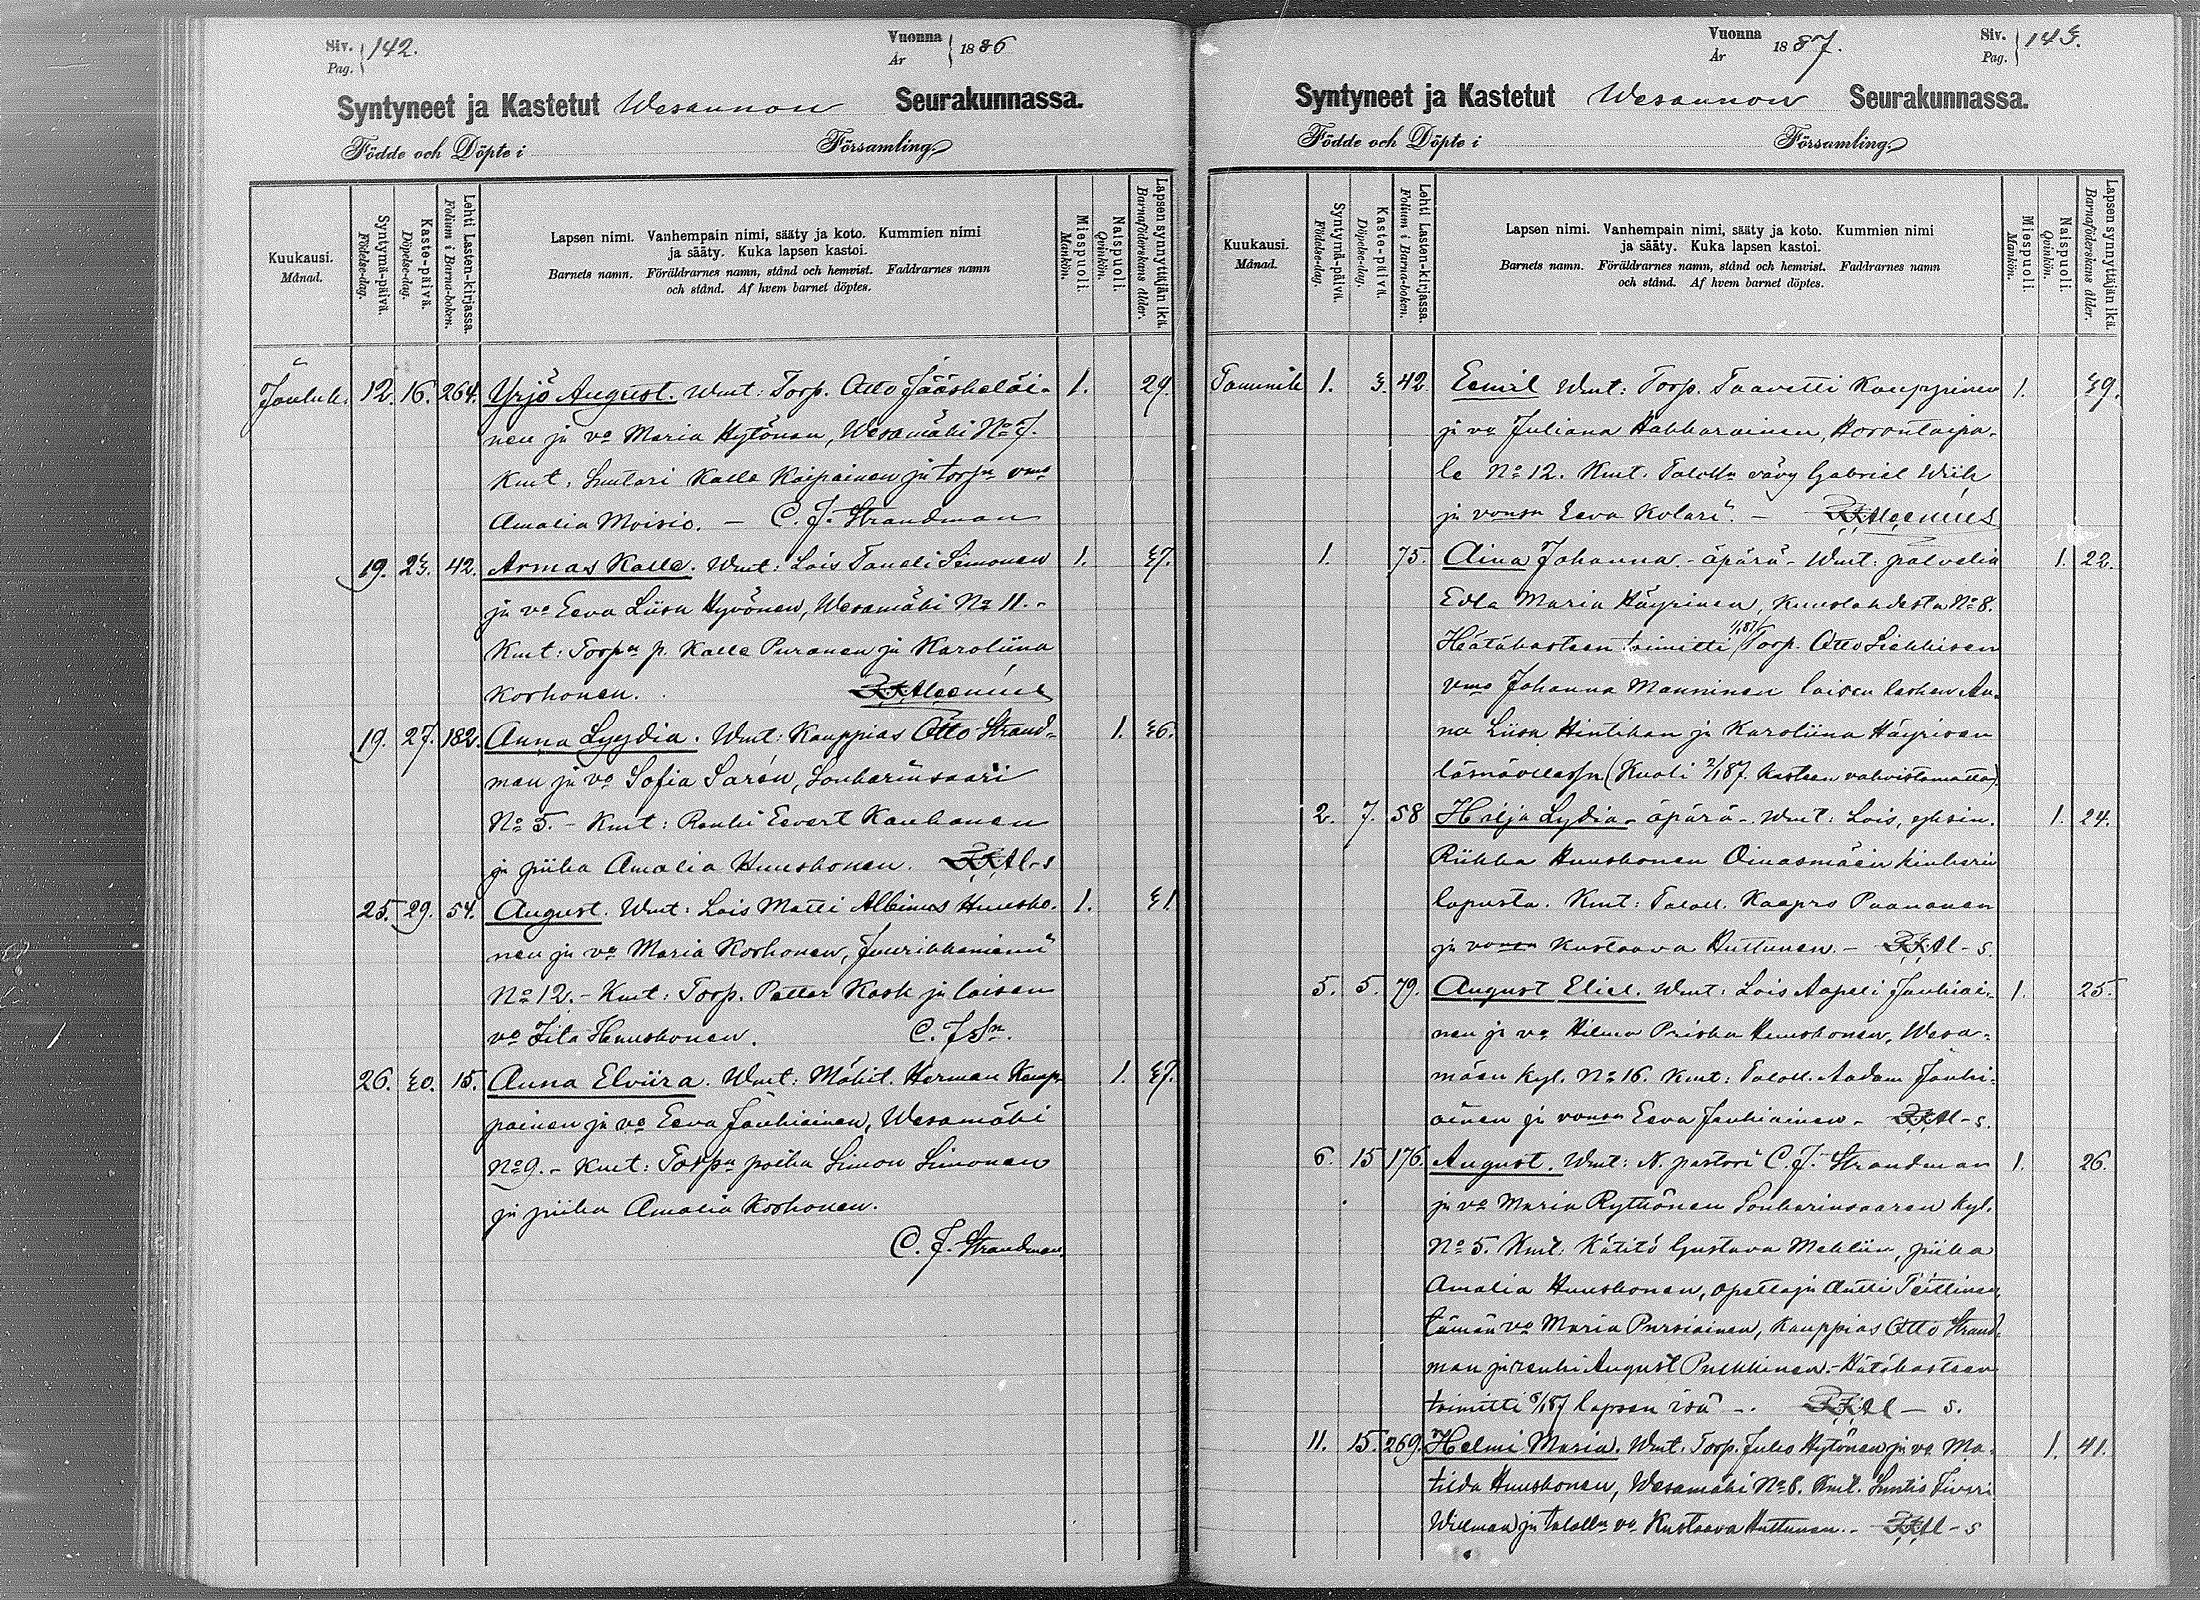 Siv. Pag. 142. Vuonna År 1886
Syntyneet ja Kastetut Wesannon Seurakunnassa.
Födde och Döpte i Församling.
Kuukausi. Månad.
Syntymä-päivä. Födelse-dag.
Kaste-päivä. Döpelse-dag.
Lehti Lasten-kirjassa. Folium i Barna-boken.
Lapsen nimi. Vanhempain nimi, sääty ja koto. Kummien nimi
ja sääty. Kuka lapsen kastoi.
Barnets namn. Föräldrarnes namn, stånd och hemvist. Faddrarnes namn
och stånd. Af hvem barnet döptes.
Miespuoli. Mankön.
Naispuoli. Qvinkön.
Lapsen synnyttäjän ikä. Barnaföderskans ålder.
Jouluk. 12. 16. 264. Yrjö August. Wmt: Torp. Otto Jääskeläi- 1. 29.
nen ja vo Maria Hytönen, Wesamäki No 7.
Kmt: Suutari Kalle Kaipainen ja torpn vmo
Amalia Moisio. — C. J. Strandman
19. 23. 42. Armas Kalle. Wmt: Lois Taneli Simonen 1. 37.
ja vo Eeva Liisa Hyvönen, Wesamäki No 11.-
Kmt: Torpn p. Kalle Puranen ja Karoliina
Korhonen.
19. 27. 182. Anna Lyydia. Wmt: Kauppias Otto Strand- 1. 36.
man ja vo Sofia Sarén, Sonkarinsaari
No 5. - Kmt: Renki Eevert Kauhanen
ja piika Amalia Huuskonen.
25. 29. 54. August. Wmt: Lois Matti Albinus Huusko- 1. 31
nen ja vo Maria Korhonen, Juurikkaniemi
No 12. - Kmt: Torp. Petter Kosk ja loisen
vo Fila Huuskonen. C. J. Sn.
26. 30. 15. Anna Elviira. Wmt: Mäkit. Herman Kaup- 1. 37.
painen ja vo Eeva Jauhiainen, Wesamäki
No 9. - Kmt: Torpn poika Simon Simonen
ja piika Amalia Korhonen.
C. J. Strandman.
Vuonna År 1887. Siv. Pag. 143.
Syntyneet ja Kastetut Wesannon Seurakunnassa.
Födde och Döpte i Församling.
Kuukausi. Månad.
Syntymä-päivä. Födelse-dag.
Kaste-päivä. Döpelse-dag.
Lehti Lasten-kirjassa. Folium i Barna-boken.
Lapsen nimi. Vanhempain nimi, sääty ja koto. Kummien nimi
ja sääty. Kuka lapsen kastoi.
Barnets namn. Föräldrarnes namn, stånd och hemvist. Faddrarnes namn
och stånd. Af hvem barnet döptes.
Miespuoli. Mankön.
Naispuoli. Qvinkön.
Lapsen synnyttäjän ikä. Barnaföderskans ålder.
Tammik 1. 3. 42. Eemil Wmt: Torp. Taavetti Kauppinen 1. 39.
ja vo Juliana Hakkarainen, Horontaipa-
le No 12. Kmt. Talolln vävy Gabriel Wiik
ja vonsa Eeva Kolari. -
1. 75. Aina Johanna - äpärä - Wmt: palvelia 1. 22.
Edla Maria Häyrinen, Kuuslahdesta No 8.
Hätäkasteen toimitti 1/1 87 Torp. Otto Liekkisen
vmo Johanna Manninen loisen lesken An-
na Liisa Hintikan ja Karoliina Häyrisen
läsnäollessa (Kuoli 2/1 87. Kasteen vahvistamatta)
2. 7. 58 Hilja Lydia - äpärä -. Wmt: Lois, yksin. 1. 24.
Riikka Huuskonen Oinasmäen kinkerin
lopusta. Kmt: Taloll. Kaapro Paananen
ja vonsa Kustaava Huttunen. -
5. 5. 79. August Eliel. Wmt: Lois Aapeli Jauhiai- 1. 25.
nen ja vo Hilma Priska Huuskonen, Wesa-
mäen kyl. No 16. Kmt: Taloll. Aadam Jauhi-
ainen ja vonsa Eeva Jauhiainen -
6. 15 176. August. Wmt: N. pastori C. J. Strandman 1. 26.
ja vo Maria Rythönen Sonkarinsaaren kyl.
No 5. Kmt: Kätilö Gustava Mehliin, piika
Amalia Huuskonen, opettaja Antti Teittinen,
tämän vo Maria Pursiainen, Kauppias Otto Strand-
man ja renki August Pulkkinen. - Hätäkasteen
toimitti 6/1 87 lapsen isä -.
11. 15. 269. Helmi Maria. Wmt. Torp. Juho Hytönen ja vo Ma- 1. 41.
tilda Huuskonen, Wesamäki No 8. Kmt. Suntio Fiveri
Wilman ja talolln vo Kustaava Huttunen. -